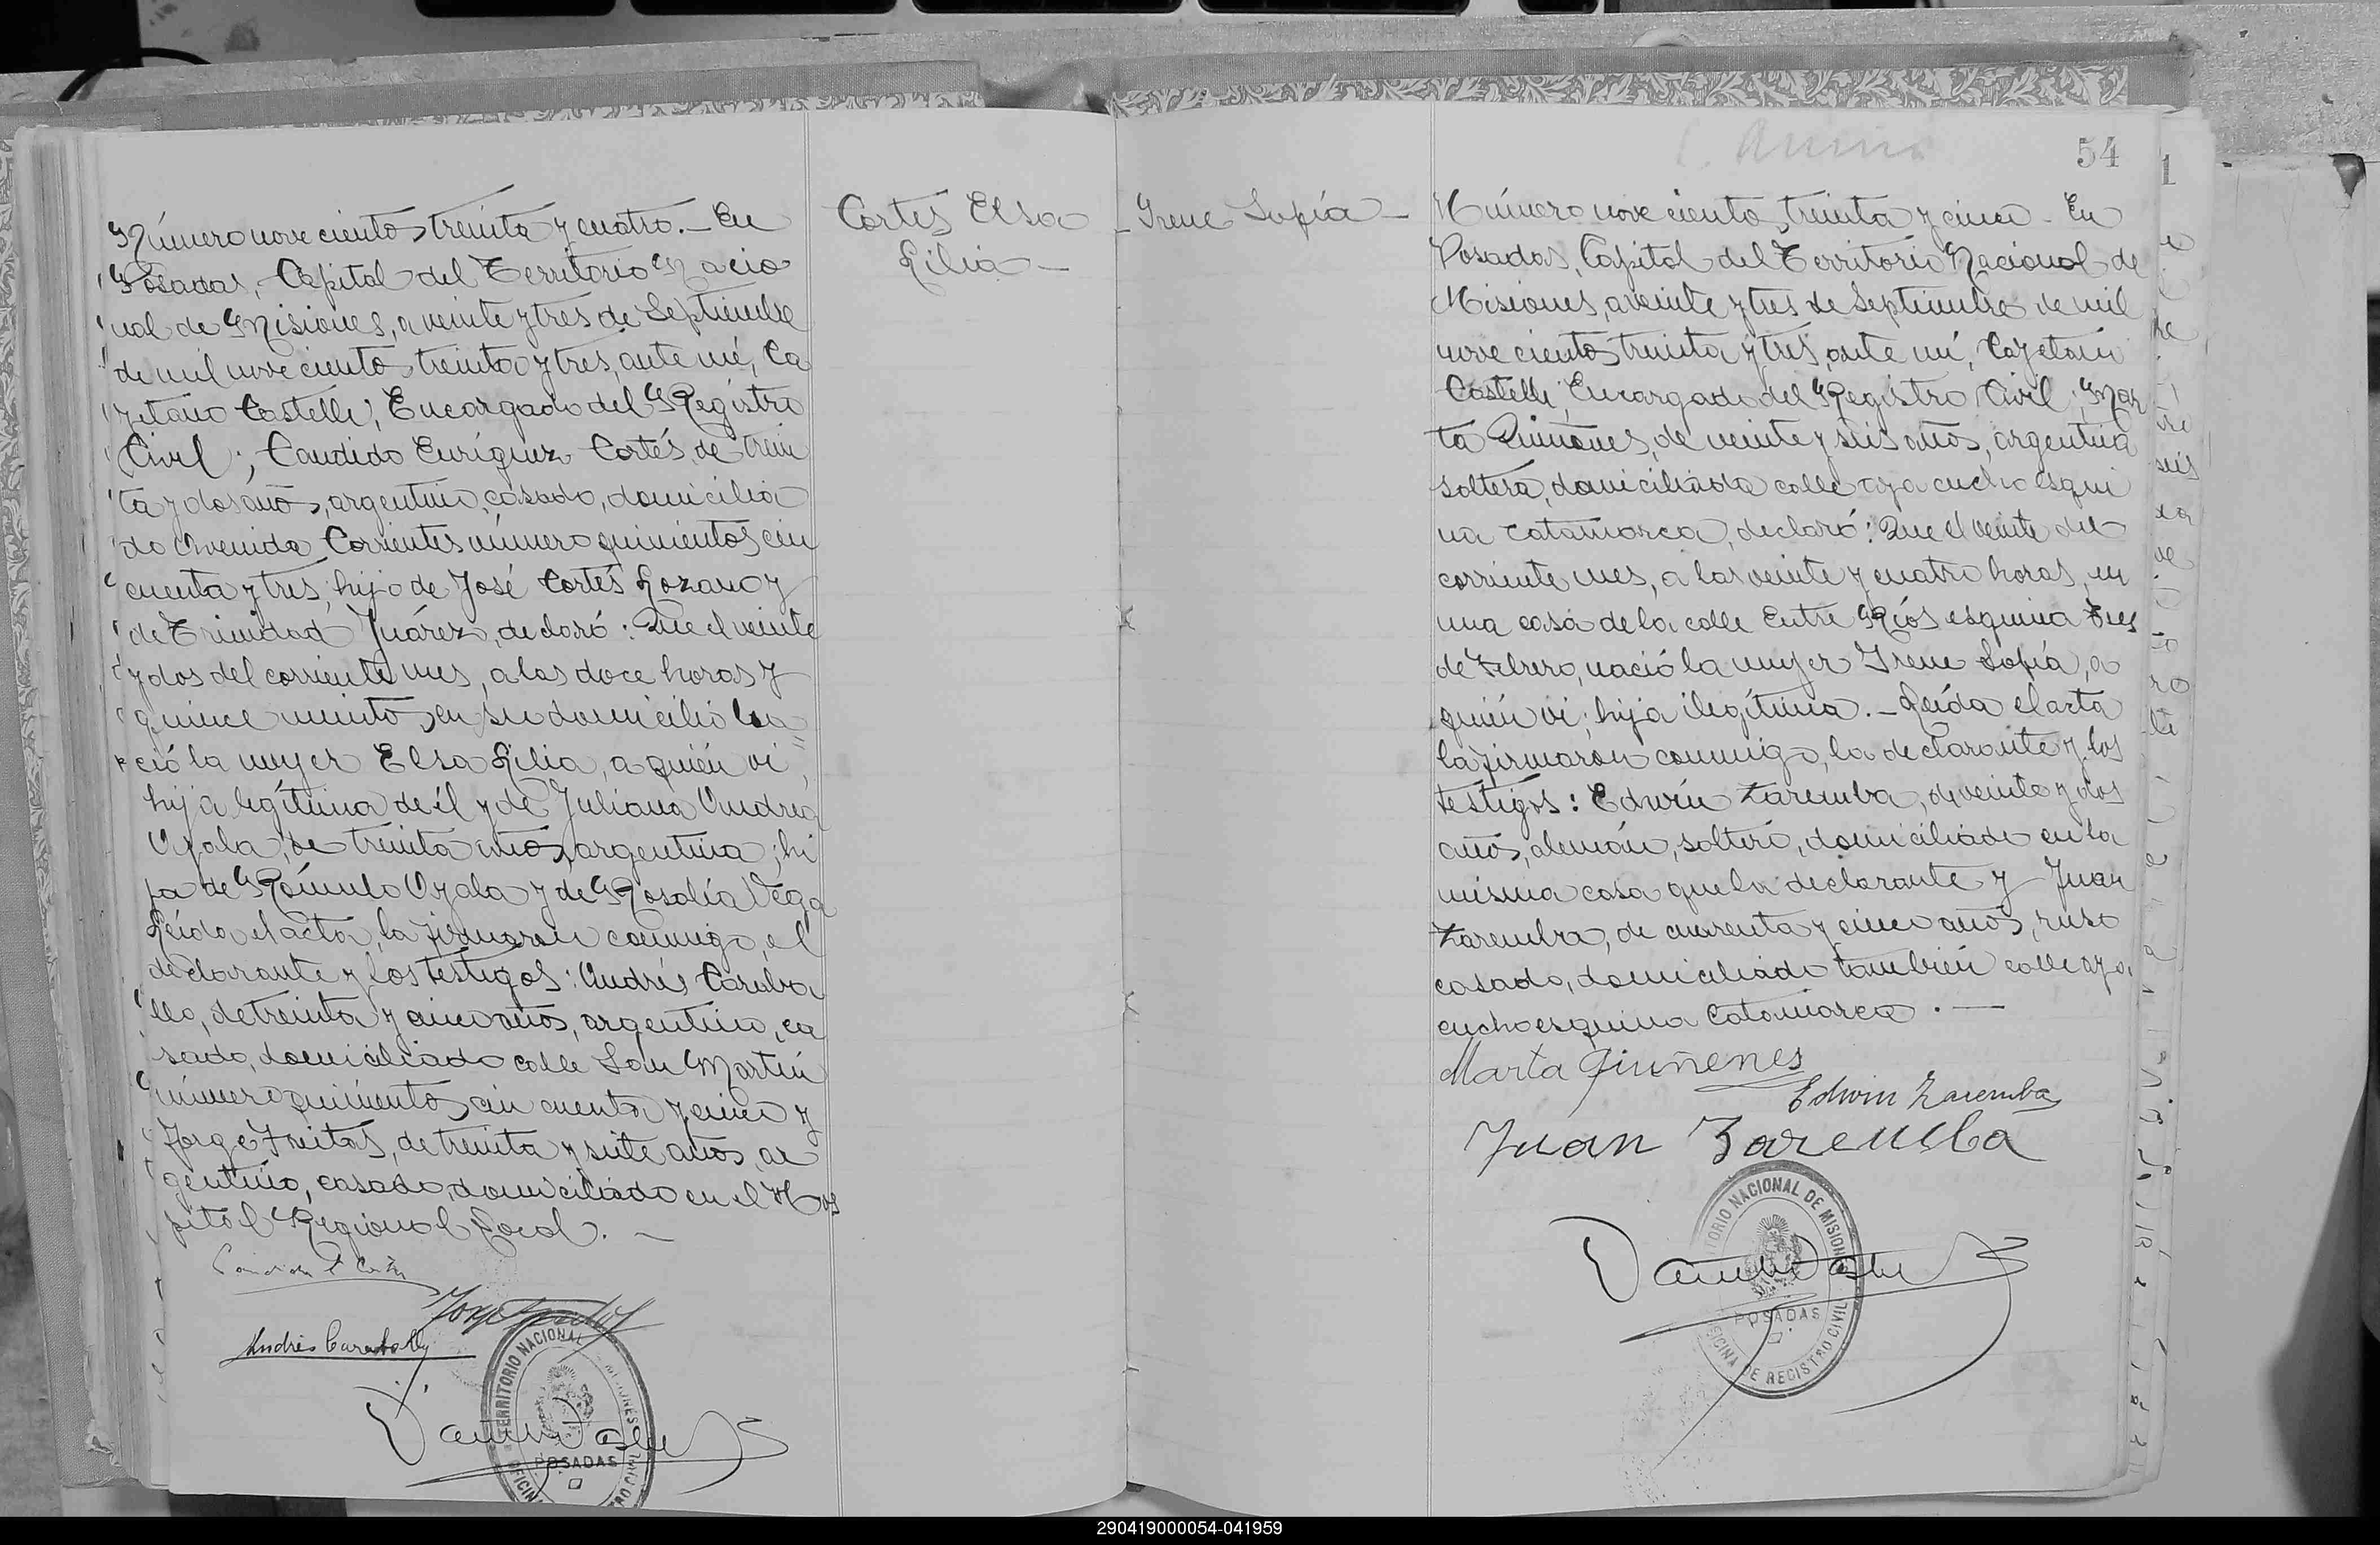 Número novecientos treinta y cuatro.- En
Posadas, Capital del Territorio Nacio
nal de Misiones, a veinte y tres de Septiembre
de mil novecientos treinta y tres, ante mí, Ca
yetano Castelli, Encargado del Registro
Civil; Candido Enríquez Cortés, de trein
ta y dos años, argentino, casado, domicilia
do Avenida Corrientes número quinientos cin
cuenta y tres, hijo de José Cortés Lozano y
de Trinidad Juárez, declaró: Que el veinte
y dos del corriente mes, a las doce horas y
quince minutos, en su domicilio na
ció la mujer Elsa Lilia, a quién vi,
hija legítima de él y de Juliana Andrea
Ayala, de treinta años, argentina; hi
ja de Rómulo Ayala y de Rosalía Vega
Leída el acta, la firmaron conmigo, el
declarante y los testigos: Andrés Caraba
llo, de treinta y cinco años, argentino, ca
sado, domiciliado calle San Martín
número quinientos cin cuenta y cinco y
Jorge Freitas, de treinta y siete años, ar
gentino, casado, domiciliado en el Hos
pital Regional Local. -
Andrés Caraballo
TERRITORIO NACIONAL MISIONES
POSADAS
Cortes Elsa
Lilia -
- Irene Sofía -
54
Número novecientos treinta y cinco - En
Posadas, Capital del Territorio Nacional de
Misiones, a veinte y tres de Septiembre de mil
novecientos treinta y tres, ante mí, Cayetano
Castelli, Encargado del Registro Civil; Mar
ta Quiñones, de veinte y seis años, argentina
soltera, domiciliada calle Ayacucho esqui
na Catamarca, declaró: Que el veinte del
corriente mes, a las veinte y cuatro horas, en
una casa de la calle Entre Ríos esquina Tres
de Febrero, nació la mujer Irene Sofía, a
quién vi; hija ilegítima.- Leída el acta
la firmaron conmigo, la declarante y los
testigos: Edwin Zaremba, de veinte y dos
años, alemán, soltero, domiciliado en la
misma casa que la declarante y Juan
Zaremba, de cuarenta y cinco años, ruso
casado, domiciliado también calle Aya
cucho esquina Catamarca. -
Marta Quiñenes
Edwin Zaremba
Juan Zaremba
TERRITORIO NACIONAL DE MISIONES
POSADAS
OFICINA DE REGISTRO CIVIL
290419000054-041959